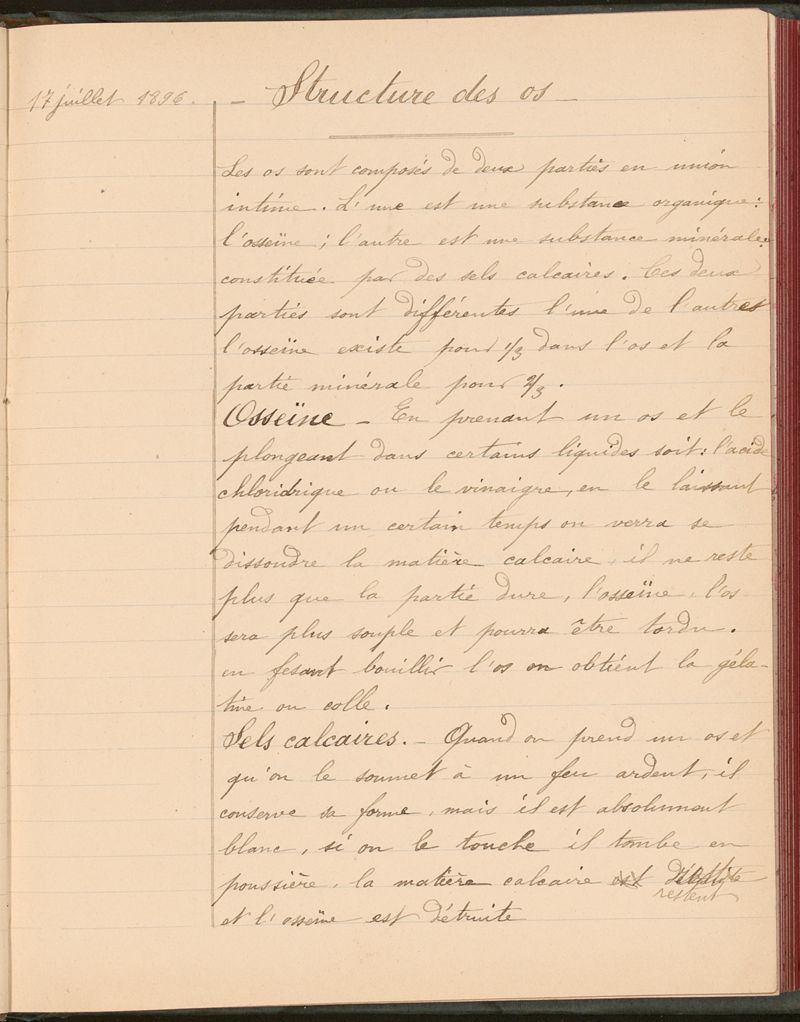 17 juillet 1896. – Structure des os –
Les os sont composés de deux parties en union
intime. L'une est une substance organique :
l'osseïne ; l'autre est une substance minérale :
constituée par des sels calcaires. Ces deux
parties sont différentes l'une de l'autre et
l'osseïne existe pour 1/3 dans l'os et la
partie minérale pour 2/3.
Osseïne – En prenant un os et le
plongeant dans certains liquides soit : l'acide
chloridrique ou le vinaigre, en le laissant
pendant un certain temps on verra se
dissoudre la matière calcaire, il ne reste
plus que la partie dure, l'osseïne, l'os
sera plus souple et pourra être tordu.
en fesant bouillir l'os on obtient la géla-
tine ou colle.
Sels calcaires. – Quand on prend un os et
qu'on le soumet à un feu ardent, il
conserve sa forme, mais il est absolument
blanc, si on le touche il tombe en
poussière, la matière calcaire est détruite
restent
et l'osseïne est détruite